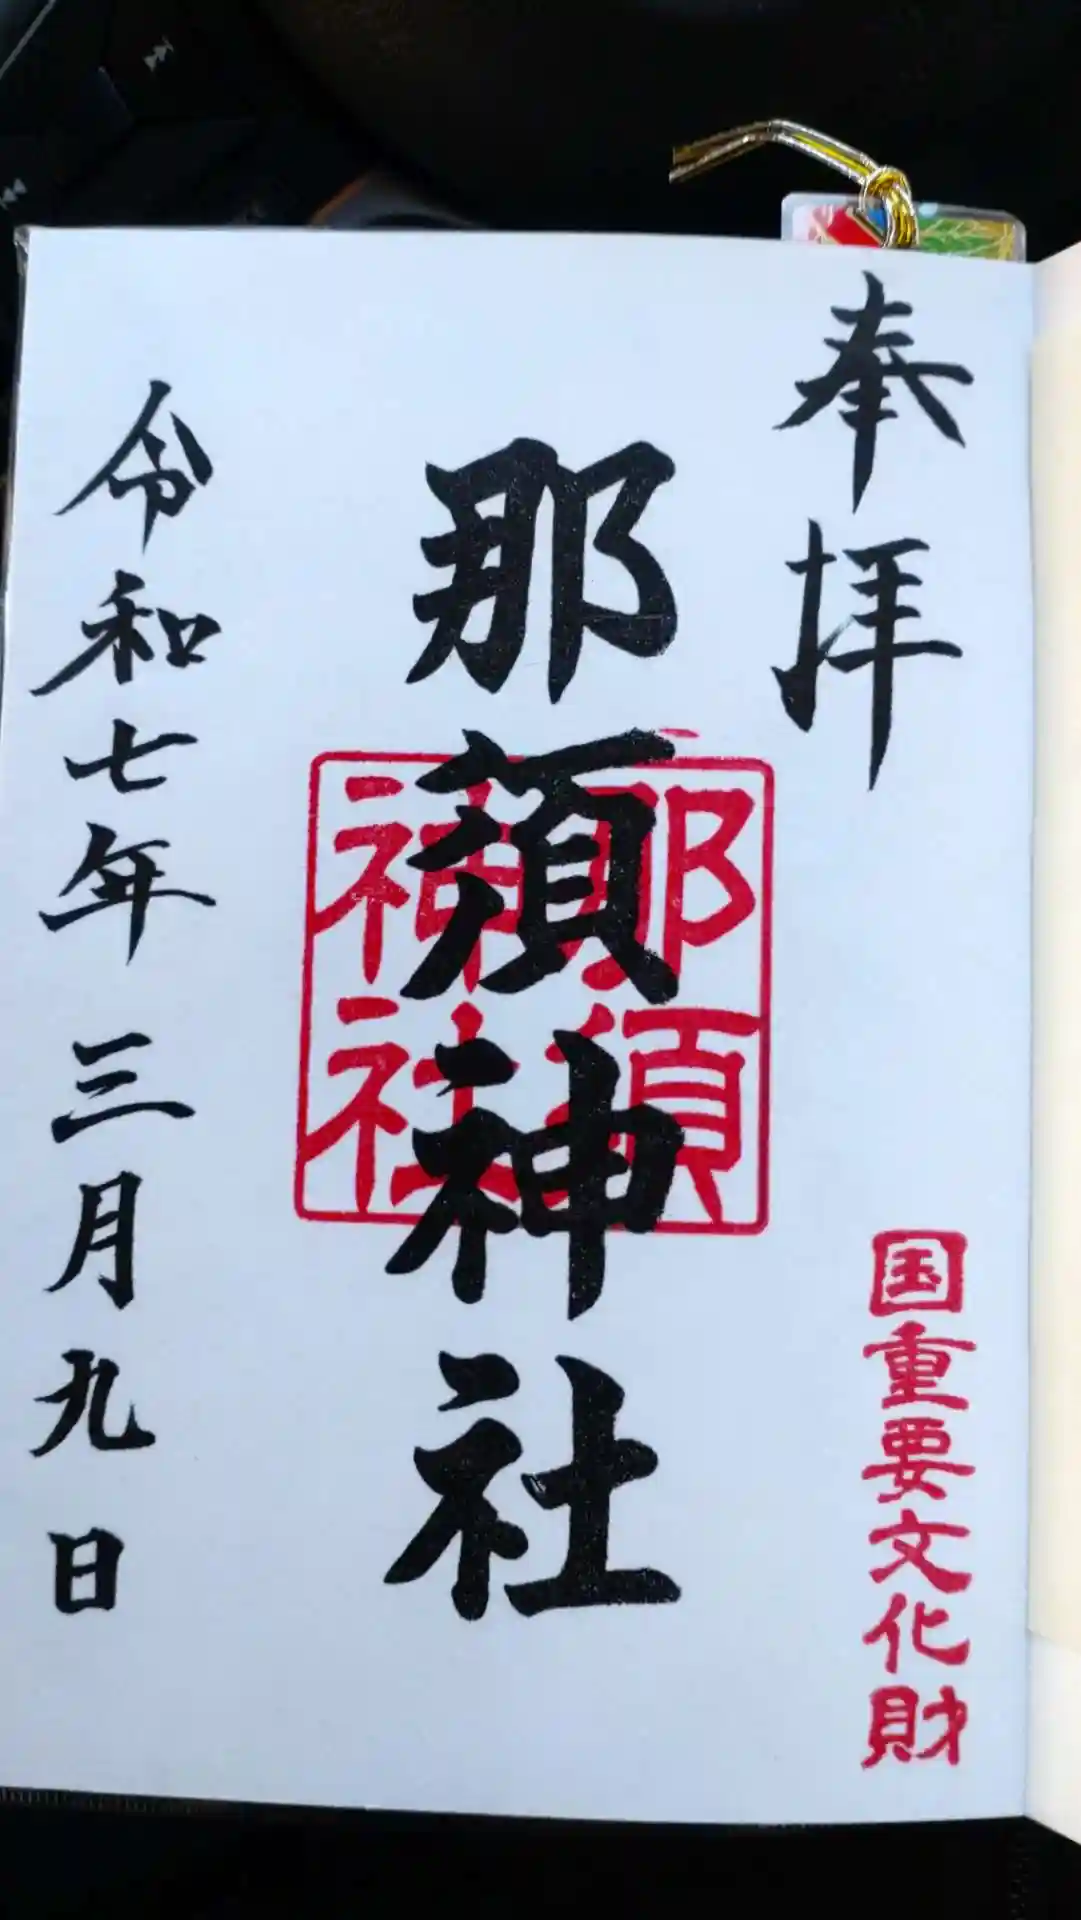 奉拝
国重要文化財
那須神社
那須
神社
令和七年三月九日